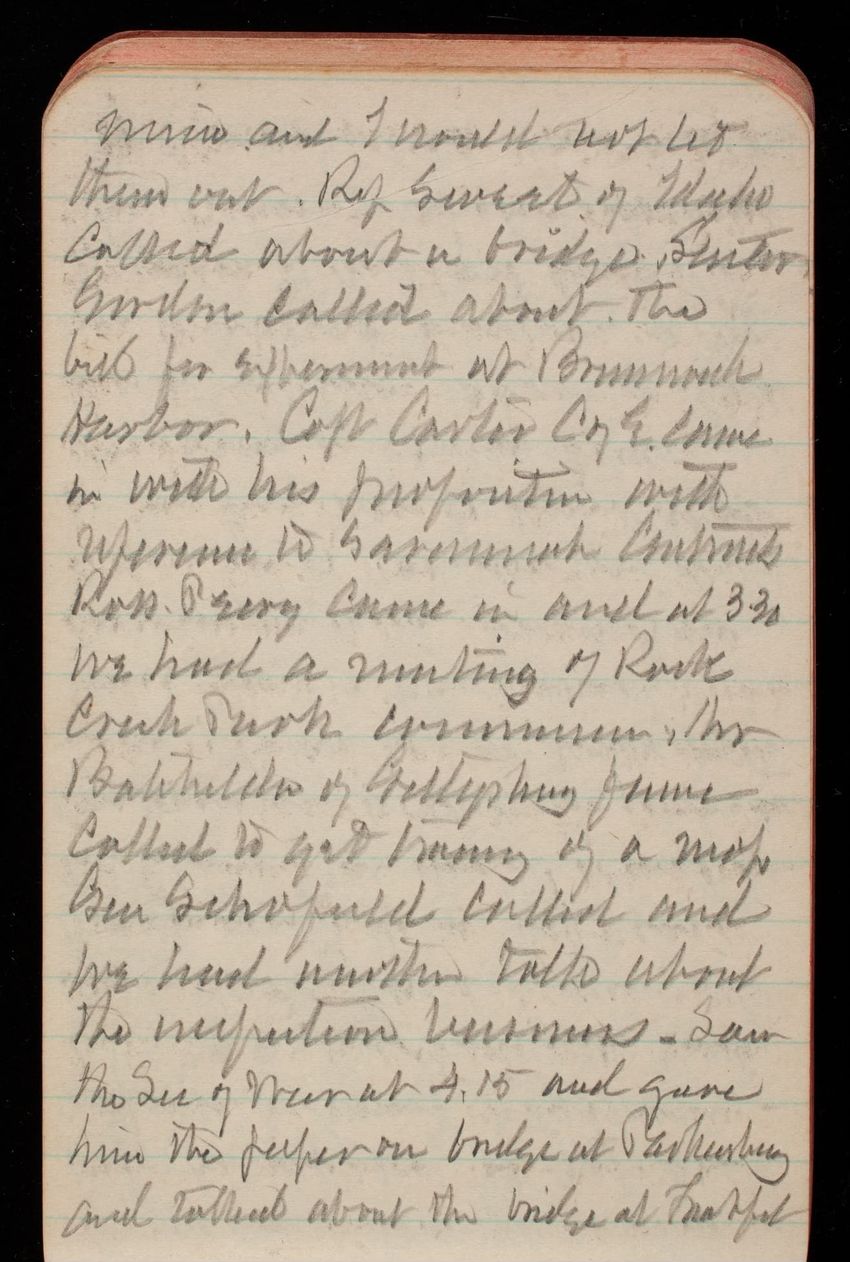 mine and I would not let
them out. Rep Sweet of Idaho
Called about a bridge. Senator
Gordon Called about the
bill for experiment at Brunswick
Harbor. Capt Carter C of E. came
in with his proposition with
reference to Savannah Contracts
Ross Perry Came in and at 330
we had a meeting of Rock
Creek Park commission. Mr
Batchelder of Gettysburg fame
Called to get tracing of a map
Gen Schofield Called and
we had another talk about
the inspection business - Saw
the Sec of War at 4.15 and gave
him the paper on bridge at Parkersburg
and talked about the bridge at